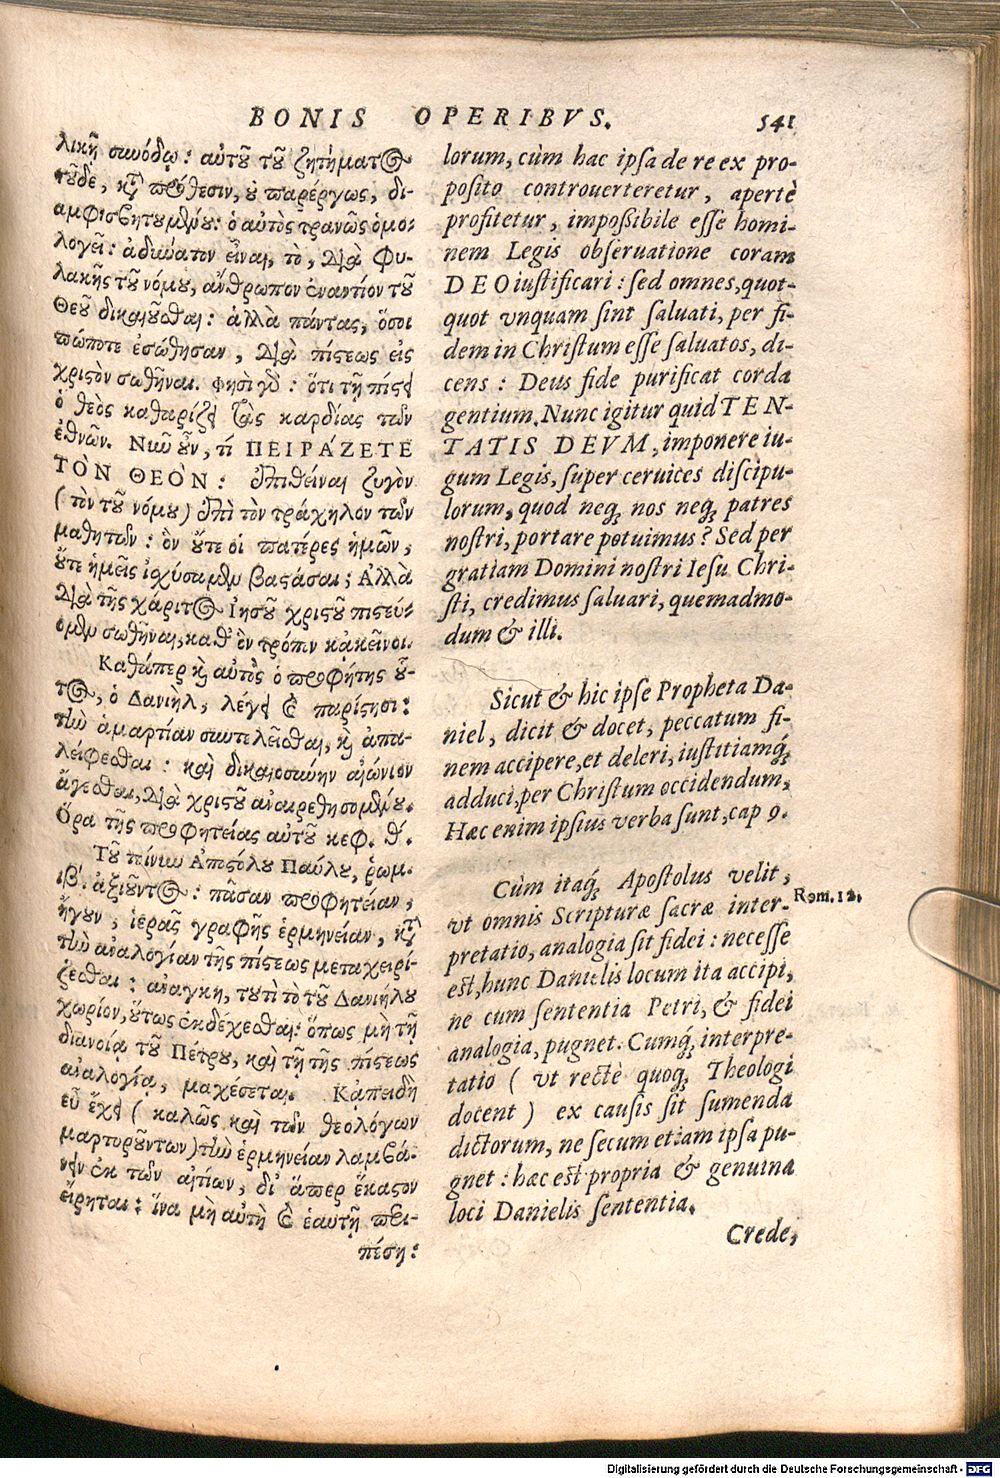 BONIS OPERIBVS. 541
λικῇ συνόδῳ: αὐτοῦ τοῦ ζητήματος
τοῦδε, κατὰ πρόθεσιν, οὐ παρέργως, δι-
αμφισβητουμένου: ὁ αὐτὸς τρανῶς ὁμο-
λογεῖ: ἀδύνατον εἶναι, τὸ, διὰ φυ-
λακῆς τοῦ νόμου, ἄνθρωπον ἐναντίον τοῦ
Θεοῦ δικαιοῦσθαι: ἀλλὰ πάντας, ὅσοι
πώποτε ἐσώθησαν, διὰ πίστεως εἰς
χριστὸν σωθῆναι. φησὶ γὰρ: ὅτι τῇ πίστει
ὁ θεὸς καθαρίζει τὰς καρδίας τῶν
ἐθνῶν. Νῦν οὖν, τί ΠΕΙΡΑΖΕΤΕ
ΤὸΝ ΘΕὸΝ: ἐπιθεῖναι ζυγὸν
(τὸν τοῦ νόμου) ἐπὶ τὸν τράχηλον τῶν
μαθητῶν: ὃν οὔτε οἱ πατέρες ἡμῶν,
οὔτε ἡμεῖς ἰσχύσαμεν βαστάσαι; Ἀλλὰ
διὰ τῆς χάριτος Ἰησοῦ χριστοῦ πιστεύ-
ομεν σωθῆναι, καθ' ὃν τρόπον κἀκεῖνοι.
Καθάπερ καὶ αὐτὸς ὁ προφήτης οὗ-
τος, ὁ Δανιὴλ, λέγει καὶ παρίστησι:
τὴν ἁμαρτίαν συντελεῖσθαι, καὶ ἀπα-
λείφεσθαι: καὶ δικαιοσύνην αἰώνιον
ἄγεσθαι, διὰ χριστοῦ ἀναιρεθησομένου.
Ὅρα τῆς προφητείας αὐτοῦ κεφ. θ'.
Τοῦ τοίνυν Ἀποστόλου Παύλου, ῥωμ.
ιβ'. ἀξιοῦντος: πᾶσαν προφητείαν,
ἤγουν, ἱερᾶς γραφῆς ἑρμηνείαν, κατὰ
τὴν ἀναλογίαν τῆς πίστεως μεταχειρί-
ζεσθαι: ἀνάγκη, τουτὶ τὸ τοῦ Δανιήλου
χωρίον, οὕτως ἐκδέχεσθαι: ὅπως μὴ τῇ
διανοίᾳ τοῦ Πέτρου, καὶ τῇ τῆς πίστεως
ἀναλογίᾳ, μαχέσεται. Κἀπειδὴ
εὖ ἔχει (καλῶς καὶ τῶν θεολόγων
μαρτυρούντων) τὴν ἑρμηνείαν λαμβά-
νειν ἐκ τῶν αἰτίων, δι' ἅπερ ἕκαστον
εἴρηται: ἵνα μὴ αὐτὴ καὶ ἑαυτῇ περι-
πέσῃ:
lorum, cùm hac ipsa de re ex pro-
posito controuerteretur, apertè
profitetur, impoßibile esse homi-
nem Legis obseruatione coram
DEO iustificari: sed omnes, quot-
quot vnquam sint saluati, per fi-
dem in Christum esse saluatos, di-
cens: Deus fide purificat corda
gentium. Nunc igitur quid TEN-
TATIS DEVM, imponere iu-
gum Legis, super ceruices discipu-
lorum, quod neq́; nos neq́; patres
nostri, portare potuimus? Sed per
gratiam Domini nostri Iesu Chri-
sti, credimus saluari, quemadmo-
dum & illi.
Sicut & hic ipse Propheta Da-
niel, dicit & docet, peccatum fi-
nem accipere, et deleri, iustitiamq́;
adduci, per Christum occidendum,
Hæc enim ipsius verba sunt, cap 9.
Cùm itaq́; Apostolus velit,
vt omnis Scripturæ sacræ inter-
pretatio, analogia sit fidei: necesse
est, hunc Danielis locum ita accipi,
ne cum sententia Petri, & fidei
analogia, pugnet. Cumq́; interpre-
tatio (vt rectè quoq́; Theologi
docent) ex causis sit sumenda
dictorum, ne secum etiam ipsa pu-
gnet: hæc est propria & genuina
loci Danielis sententia.
Crede,
Rom. 12.
Digitalisierung gefördert durch die Deutsche Forschungsgemeinschaft - DFG